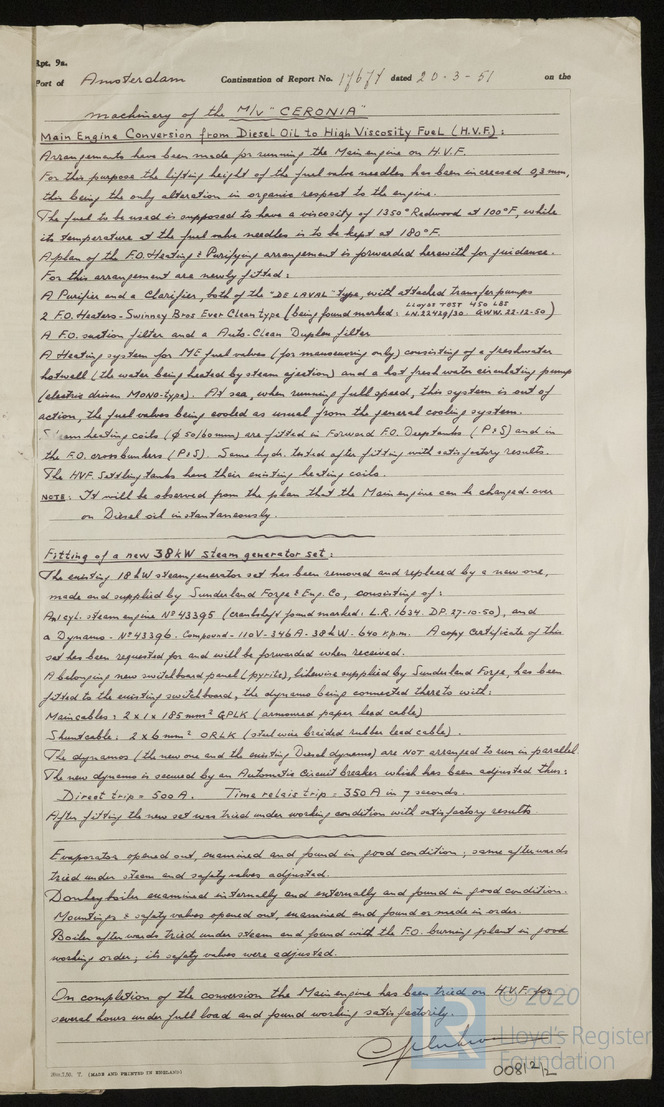 Rpt. 9a.
Port of Amsterdam Continuation of Report No. 17674 dated 20-3-51 on the
machinery of the M/V "CERONIA"
Main Engine Conversion from Diesel Oil to High Viscosity Fuel (H.V.F.):
Arrangements have been made for running the Main engine on H.V.F.
For this purpose the lifting height of the fuel valve needles has been increased 0,3 mm,
this being the only alteration in organic respect to the engine.
The fuel to be used is supposed to have a viscosity of 1350° Redwood at 100°F, while
its temperature at the fuel valve needles is to be kept at 180°F.
A plan of the F.O. Heating & Purifying arrangement is forwarded herewith for guidance.
For this arrangement are newly fitted:
A Purifier and a Clarifier, both of the "DE LAVAL" type, with attached transfer pumps
2 F.O. Heaters - Swinney Bros Ever Clean type (being found marked: LLOYDS TEST 450 LBS LN.22429/30. GWW.22-12-50)
A F.O. suction filter and a Auto-Clean Duplex filter
A Heating system for ME fuel valves (for manoeuvring only) consisting of a freshwater
hotwell (the water being heated by steam ejection) and a hot fresh water circulating pump
(electric driven MONO-type). At sea, when running full speed, this system is out of
action, the fuel valves being cooled as usual from the general cooling system.
Steam heating coils (ϕ 50/60 mm) are fitted in Forward F.O. Deeptanks (P&S) and in
the F.O. crossbunkers (P&S). Same hydr. tested after fitting with satisfactory results.
The HVF. Settling tanks have their existing heating coils.
NOTE: It will be observed from the plan that the Main engine can be changed-over
on Diesel oil instantaneously.
Fitting of a new 38kW steam generator set:
The existing 18kW steam generator set has been removed and replaced by a new one,
made and supplied by Sunderland Forge & Eng. Co, consisting of:
A 1 cyl. steam engine No 43395 (crankshaft found marked: L.R. 1634. DP. 27-10-50), and
a Dynamo - No 43396. Compound - 110V - 346A - 38kW - 640 r.p.m. A copy Certificate of this
set has been requested for and will be forwarded when received.
A belonging new switchboard panel (pyrite), likewise supplied by Sunderland Forge, has been
fitted to the existing switchboard, the dynamo being connected thereto with:
Main cables: 2 x 1 x 185 mm² GPLK (armoured paper lead cable)
Shunt cable: 2 x 6 mm² ORLK (steel wire braided rubber lead cable).
The dynamos (the new one and the existing Diesel dynamo) are NOT arranged to run in parallel.
The new dynamo is secured by an Automatic Circuit breaker which has been adjusted thus:
Direct trip = 500 A. Time relais trip = 350 A in 7 seconds.
After fitting the new set was tried under working condition with satisfactory results
Evaporator opened out, examined and found in good condition; same afterwards
tried under steam and safety valves adjusted.
Donkey boiler examined internally and externally and found in good condition.
Mountings & safety valves opened out, examined and found or made in order.
Boiler afterwards tried under steam and found with the F.O. burning plant in good
working order; its safety valves were adjusted.
On completion of the conversion the Main engine has been tried on H.V.F. for
several hours under full load and found working satisfactorily.
(MADE AND PRINTED IN ENGLAND)
LR © 2020
Lloyd's Register
Foundation
00812/2